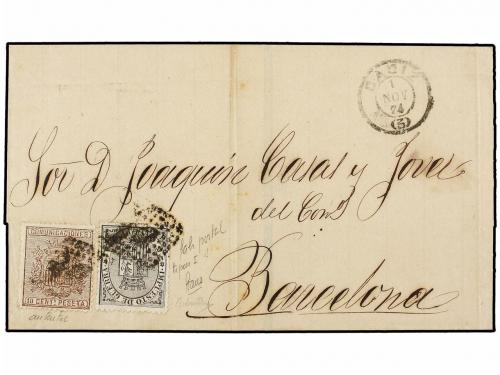 CADIZ
1
NOV
74
(3)
Sor D Joaquin Casas y Jover
del Comº
Barcelona
COMUNICACIONES
10 CENT. PESETA
IMPUESTO DE GUERRA